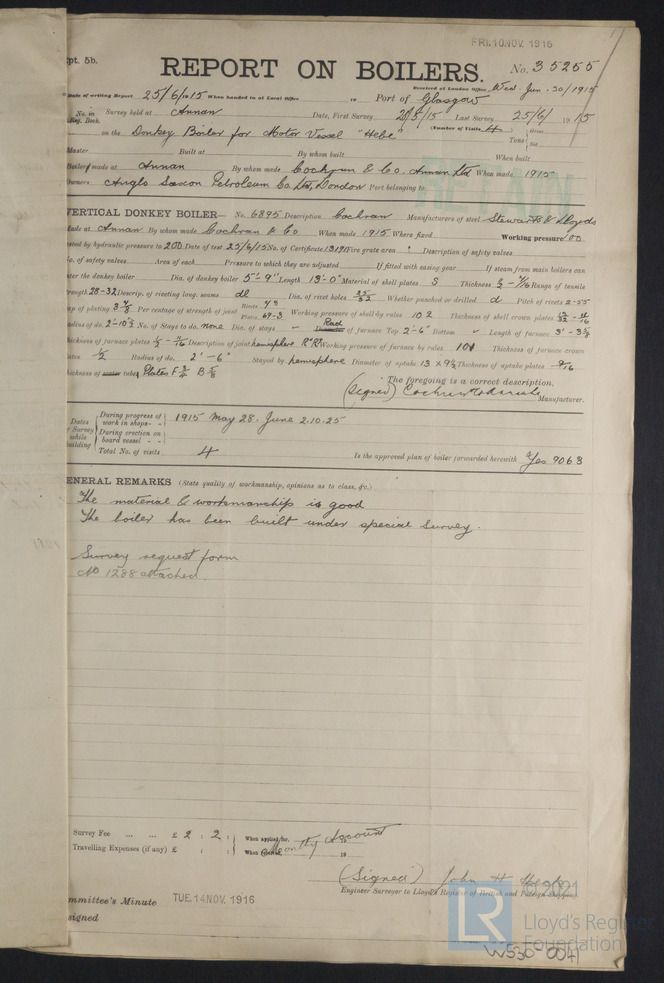 FRI. 10 NOV. 1916
Rpt. 5b.
REPORT ON BOILERS.
No. 35255
Received at London Office Wed. Jun. 30/1915
Date of writing Report 25/6/1915 When handed in at Local Office 19 Port of Glasgow
No. in Reg. Book. Survey held at Annan Date, First Survey Last Survey 25/6/1915
(Number of Visits 4)
on the Donkey Boiler for Motor Vessel "Hebe" Tons { Gross Net
Master Built at By whom built When built
Boiler made at Annan By whom made Cochran & Co. Annan Ltd When made 1915
Owners Anglo Saxon Petroleum Co. Ltd, London Port belonging to
RETAIN
VERTICAL DONKEY BOILER— No. 6895 Description Cochran Manufacturers of steel Stewarts & Lloyds
Made at Annan By whom made Cochran & Co When made 1915 Where fixed Working pressure 100
tested by hydraulic pressure to 200 Date of test 25/6/15 No. of Certificate 13191 Fire grate area Description of safety valves
No. of safety valves Area of each Pressure to which they are adjusted If fitted with easing gear If steam from main boilers can
enter the donkey boiler Dia. of donkey boiler 5'-9" Length 13'-0" Material of shell plates S Thickness Range of tensile
strength 28-32 Descrip. of riveting long. seams dl Dia. of rivet holes 25/32 Whether punched or drilled d Pitch of rivets 2.55
Lap of plating Per centage of strength of joint Rivets Plates 69.3 Working pressure of shell by rules 102 Thickness of shell crown plates
Radius of do. No. of Stays to do. none Dia. of stays Rad of furnace Top 2'-6" Bottom Length of furnace
Thickness of furnace plates Description of joint hemisphere Working pressure of furnace by rules 101 Thickness of furnace crown
plates 1/2 Radius of do. 2'-6" Stayed by hemisphere Diameter of uptake Thickness of uptake plates 9/16
Thickness of tube Plates F 3/4 B 5/8
The foregoing is a correct description,
(signed) Manufacturer.
Dates of Survey while building
During progress of work in shops - - 1915 May 28. June 2.10.25
During erection on board vessel - -
Total No. of visits 4
Is the approved plan of boiler forwarded herewith Yes 9063
GENERAL REMARKS (State quality of workmanship, opinions as to class, &c.)
The material & workmanship is good
The boiler has been built under special survey.
Survey request form
No 1288 attached
Survey Fee ... ... £ 2 : 2 : When applied for, Monthly Account 19
Travelling Expenses (if any) £ : : When received, 19
(Signed) John H.
Engineer Surveyor to Lloyd's Register of British and Foreign Shipping.
Committee's Minute TUE. 14 NOV. 1916
Assigned
© 2021
LR
Lloyd's Register
Foundation
W530-0041